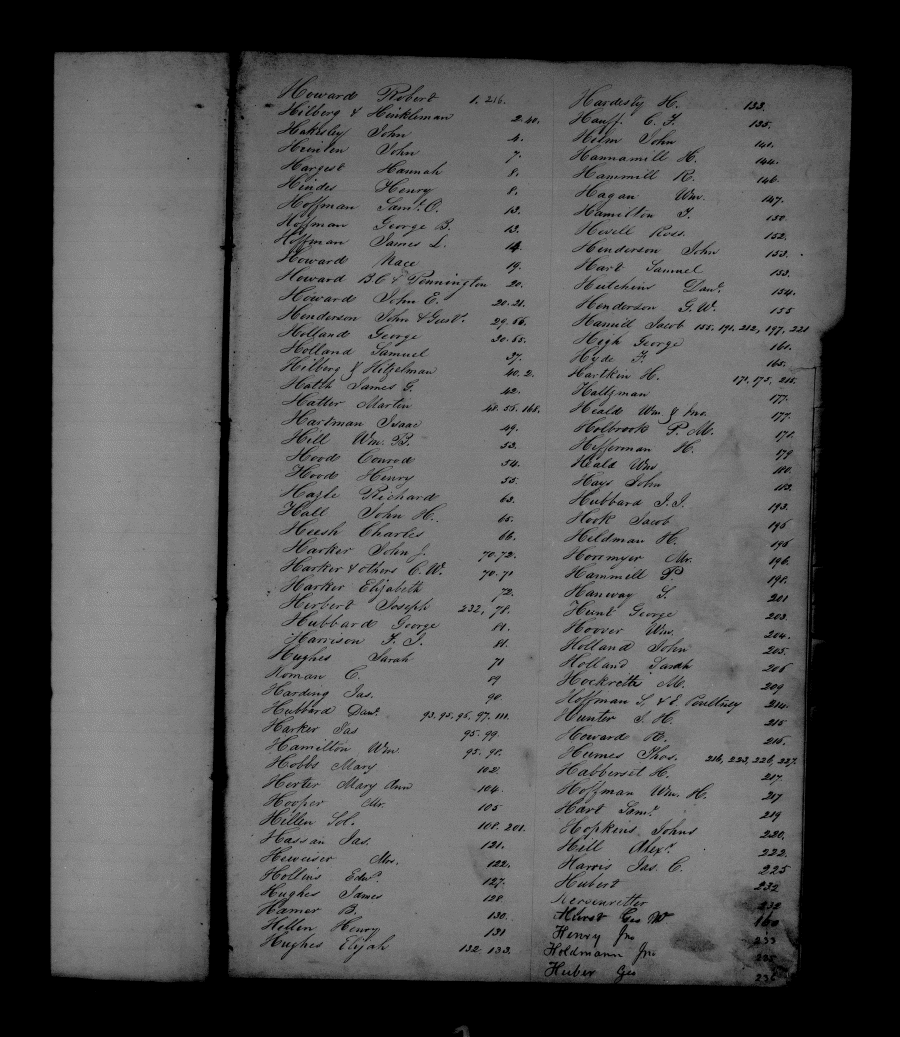 Howard Robert 1. 216.
Hilberg & Hinkleman 2. 40.
Hakesley John 4.
Hunten John 7.
Hargest Hannah 8.
Hindes Henry 8.
Hoffman Saml. O. 13.
Hoffman George B. 13.
Hoffman James L. 14.
Howard Mace 19.
Howard B C & Pennington 20.
Howard John E. 20. 21.
Henderson John & Gusts. 29. 56.
Holland George 30. 55.
Holland Samuel 37.
Hilberg & Hilzelman 40. 2.
Hatch James G. 42.
Hatter Martin 48. 55. 168.
Hartman Isaac 49.
Hill Wm. B. 53.
Hood Conrod 54.
Hood Henry 55.
Hazle Richard 63.
Hall John H. 65.
Heesh Charles 66.
Harker John J. 70. 72.
Harker & others C. W. 70. 71
Harker Elizabeth 72.
Herbert Joseph 232, 78.
Hubbard George 81.
Harrison T. I. 81.
Hughes Sarah 71
Homan C. 89
Harding Jas. 90.
Hubbard Danl. 93. 95. 95. 97. 111.
Harker Jas 95. 99.
Hamilton Wm. 95. 98.
Hobbs Mary 102.
Herter Mary Ann 104.
Hooper Mr. 105
Hillen Sol. 108. 201.
Hassan Jas. 121.
Heweiser Mrs. 122.
Hollins Edwd. 127.
Hughes James 128
Hamer B. 130.
Hellen Henry 131
Hughes Elijah 132. 133.
Hardesty H. 133.
Hauff. C. F. 135.
Heim John 141.
Hannamill H. 144.
Hammill R. 146.
Hagan Wm. 147.
Hamilton T. 150.
Hewell Ross. 152.
Henderson John 153.
Hart Samuel 153.
Hutchins Danl. 154.
Henderson G. W. 155
Hamil Jacob 155. 191. 212, 197, 221
High George 161.
Hyde T. 165.
Hartkin H. 171. 175. 215.
Haltzman 177.
Heald Wm & Jno. 177.
Holbrook P. M. 178.
Hefferman H. 179
Heald Wm 180.
Hays John 183.
Hubbard I. I. 193.
Hook Jacob 195
Heldman H. 195
Horemyer Mr. 196.
Hammill P 198.
Hanway S. 201
Hunt George 203.
Hoover Wm. 204.
Holland John 205.
Holland Sarah 206
Hockrettie M. 209
Hoffman S. & E. Poultney 214.
Hunter S. H. 215
Howard H. 216.
Humes Thos. 216, 223, 226, 227.
Habberset H. 217.
Hoffman Wm. H. 217
Hart Saml. 219
Hopkins Johns 220.
Hill Alexr. 222.
Harris Jas. C. 225
Hubert 232
232
Hurst Geo W 160
Henry Jno 233
Holdmann Jno 235
Huber Geo 236